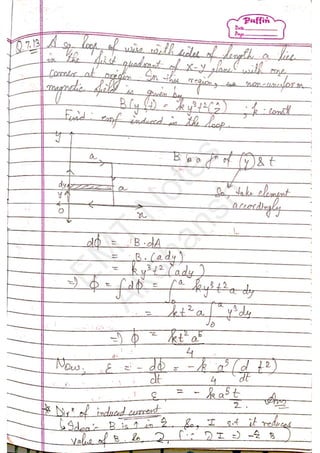 Puffin
Date
Page
Q 7.13 A sq loop of wire with sides of length a lies
in the first quadrant of x-y plane with one
corner at origin. In this region, non-uniform
magnetic field is given by
B(y,t) = ky³t² (ẑ) ; k: const
Find: emf induced in the loop.
y
a
B is a fⁿ of (y) & t
dy
a
So, take element
y
accordingly
O
x
dϕ = B.dA
= B.(ady)
= ky³t² (ady)
=> ϕ = ∫dϕ = ∫₀ᵃ ky³t² a dy
= kt² a ∫₀ᵃ y³dy
=> ϕ = kt² a⁵
4
Now, ε = - dϕ = - k a⁵ (d t²)
dt 4 dt
ε = - ka⁵t Ans
2
* Dirⁿ of induced current
Idea:- B is ↑ in ẑ. So, I s.t it reduces
value of B. So, (∵ I => -ẑ B)
EMT Notes